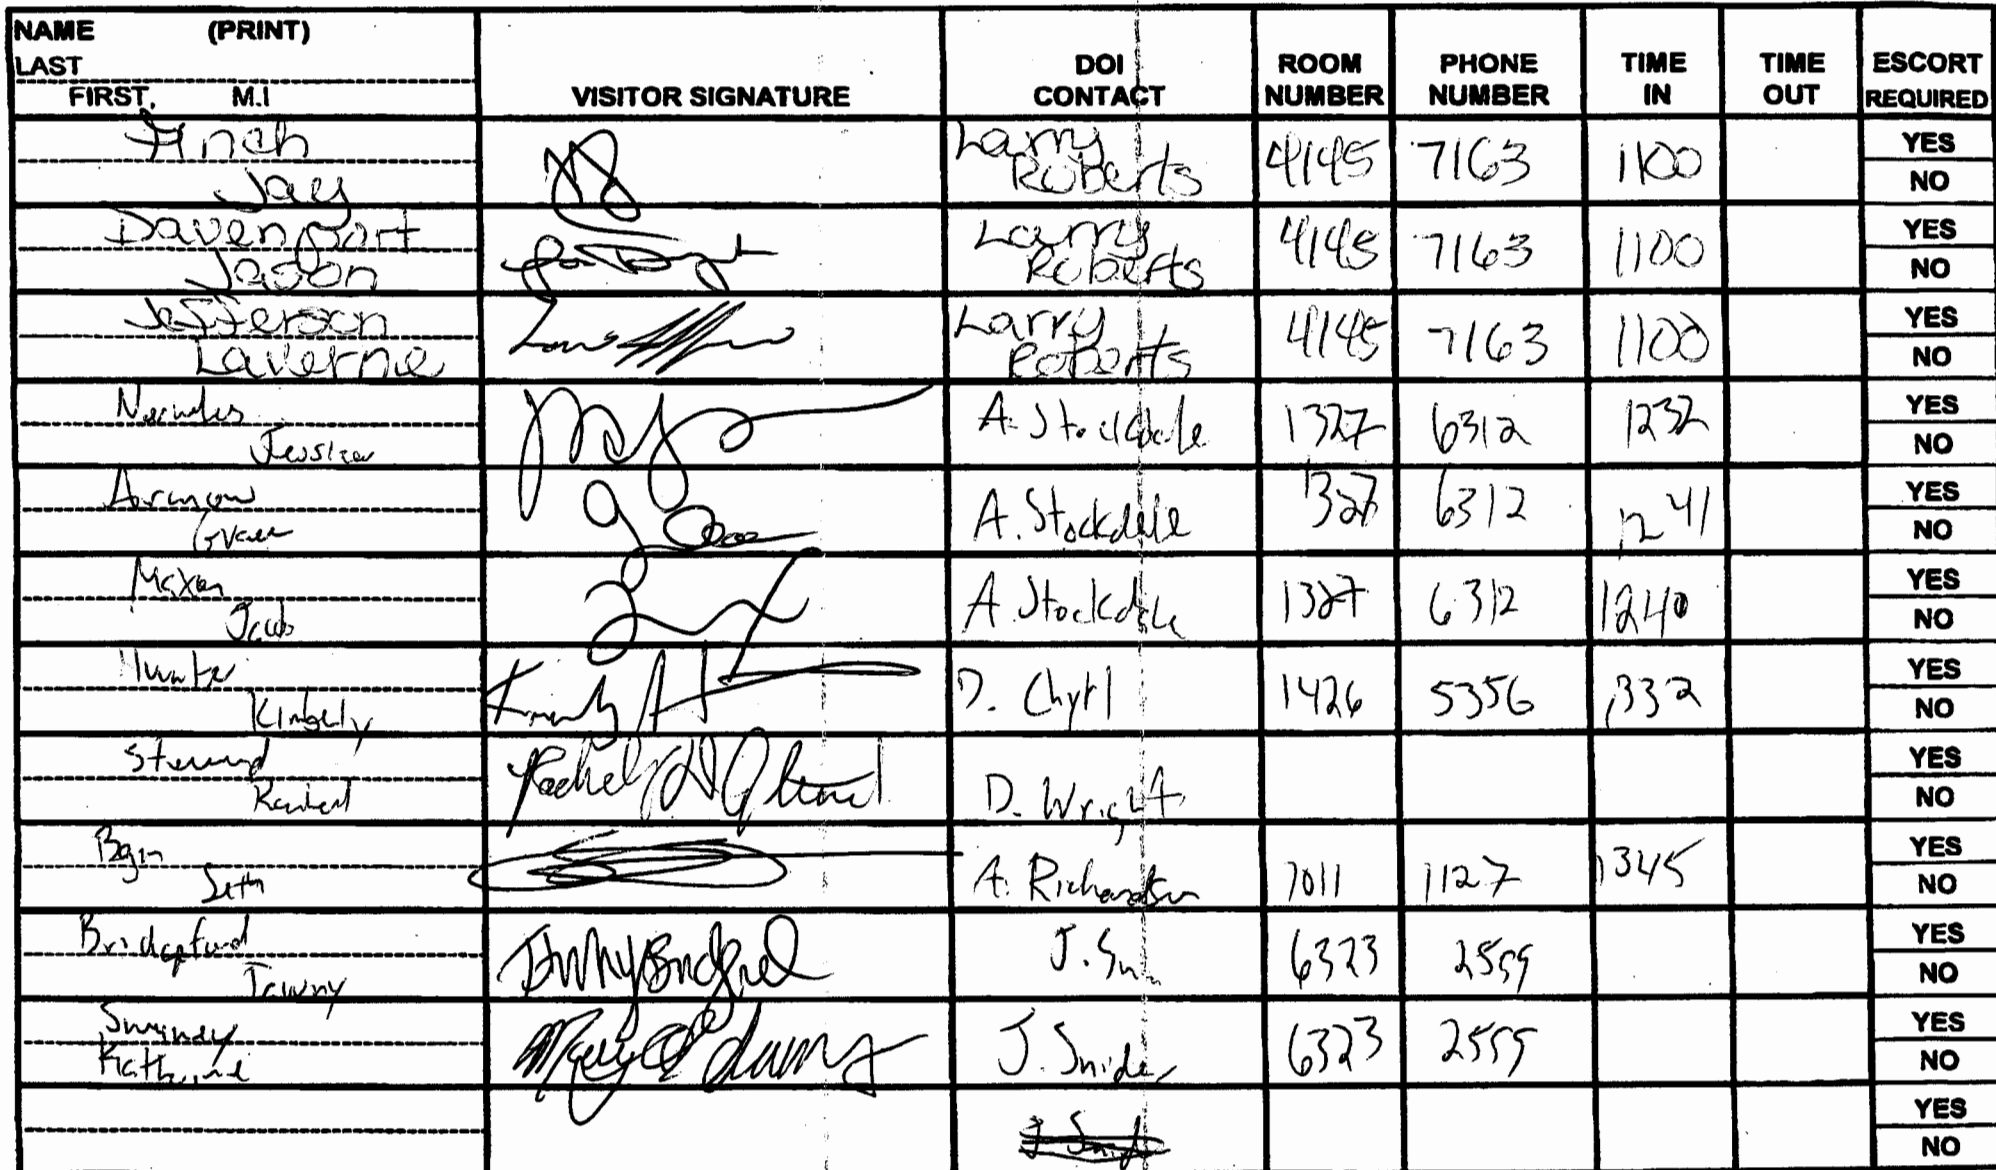 NAME (PRINT)
LAST
FIRST, M.I
VISITOR SIGNATURE
DOI CONTACT
ROOM NUMBER
PHONE NUMBER
TIME IN
TIME OUT
ESCORT REQUIRED
Finch
Jay
Larry Roberts 4145 7163 1100 YES NO
Davenport
Jason
Larry Roberts 4145 7163 1100 YES NO
Jefferson
Laverne
Larry Roberts 4145 7163 1100 YES NO
Jessica
A. Stockdale 1327 6312 1232 YES NO
A. Stockdale 1327 6312 1241 YES NO
Maxon
Jacob
A. Stockdale 1327 6312 1240 YES NO
Hunter
Kimberly
D. Chyrl 1426 5356 1332 YES NO
Rachel
D. Wright YES NO
Seth
A. Richardson 7011 1127 1345 YES NO
Bridgeford
Tawny
J. 6323 2559 YES NO
Sweeney
Katherine
J. Snider 6323 2559 YES NO
YES NO